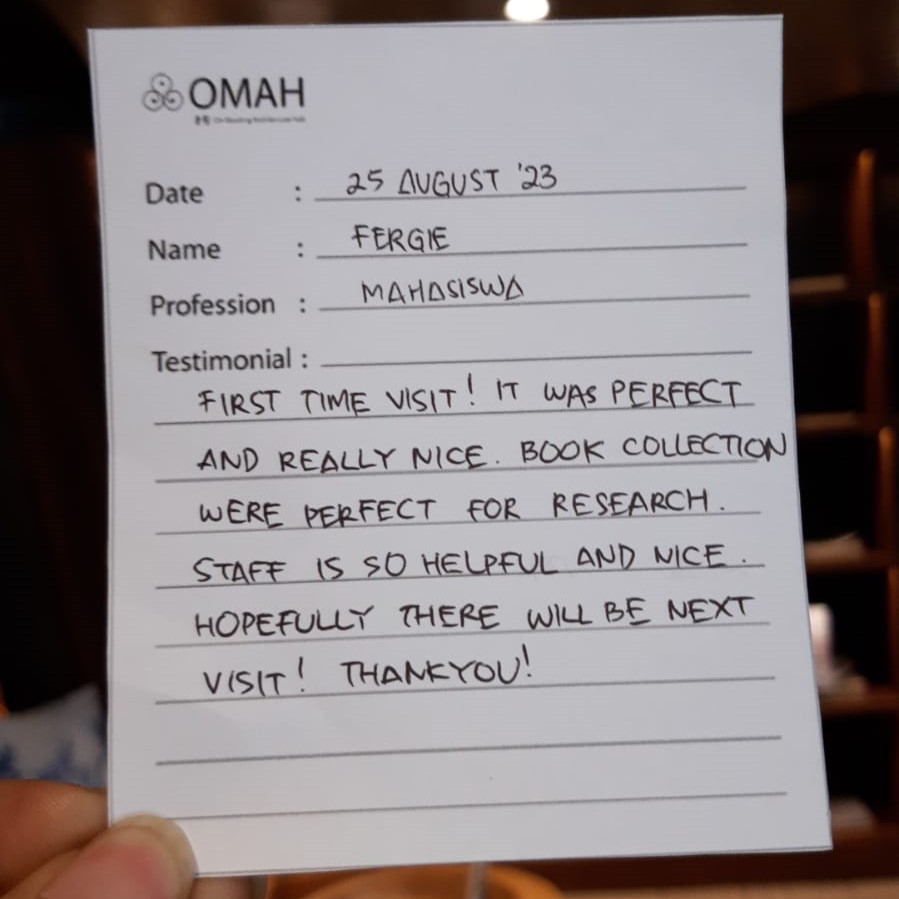 OMAH
Date : 25 AUGUST '23
Name : FERGIE
Profession : MAHASISWA
Testimonial :
FIRST TIME VISIT! IT WAS PERFECT
AND REALLY NICE. BOOK COLLECTION
WERE PERFECT FOR RESEARCH.
STAFF IS SO HELPFUL AND NICE.
HOPEFULLY THERE WILL BE NEXT
VISIT! THANKYOU!